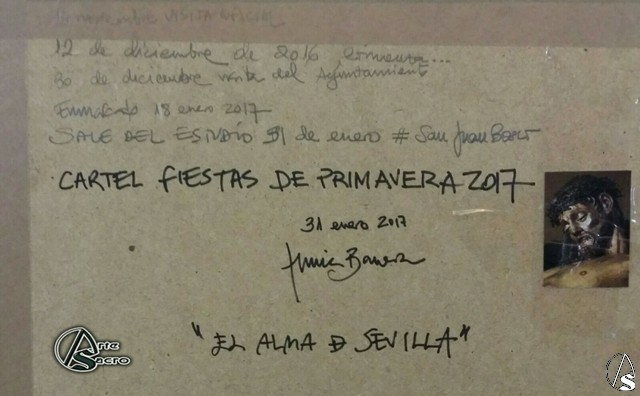 noviembre VISITA OFICIAL
12 de diciembre de 2016 comienza...
30 de diciembre visita del Ayuntamiento
Enmarcado 18 enero 2017
SALE DEL ESTUDIO 31 de enero # San Juan Bosco
CARTEL FIESTAS DE PRIMAVERA 2017
31 enero 2017
"EL ALMA D SEVILLA"
Arte Sacro